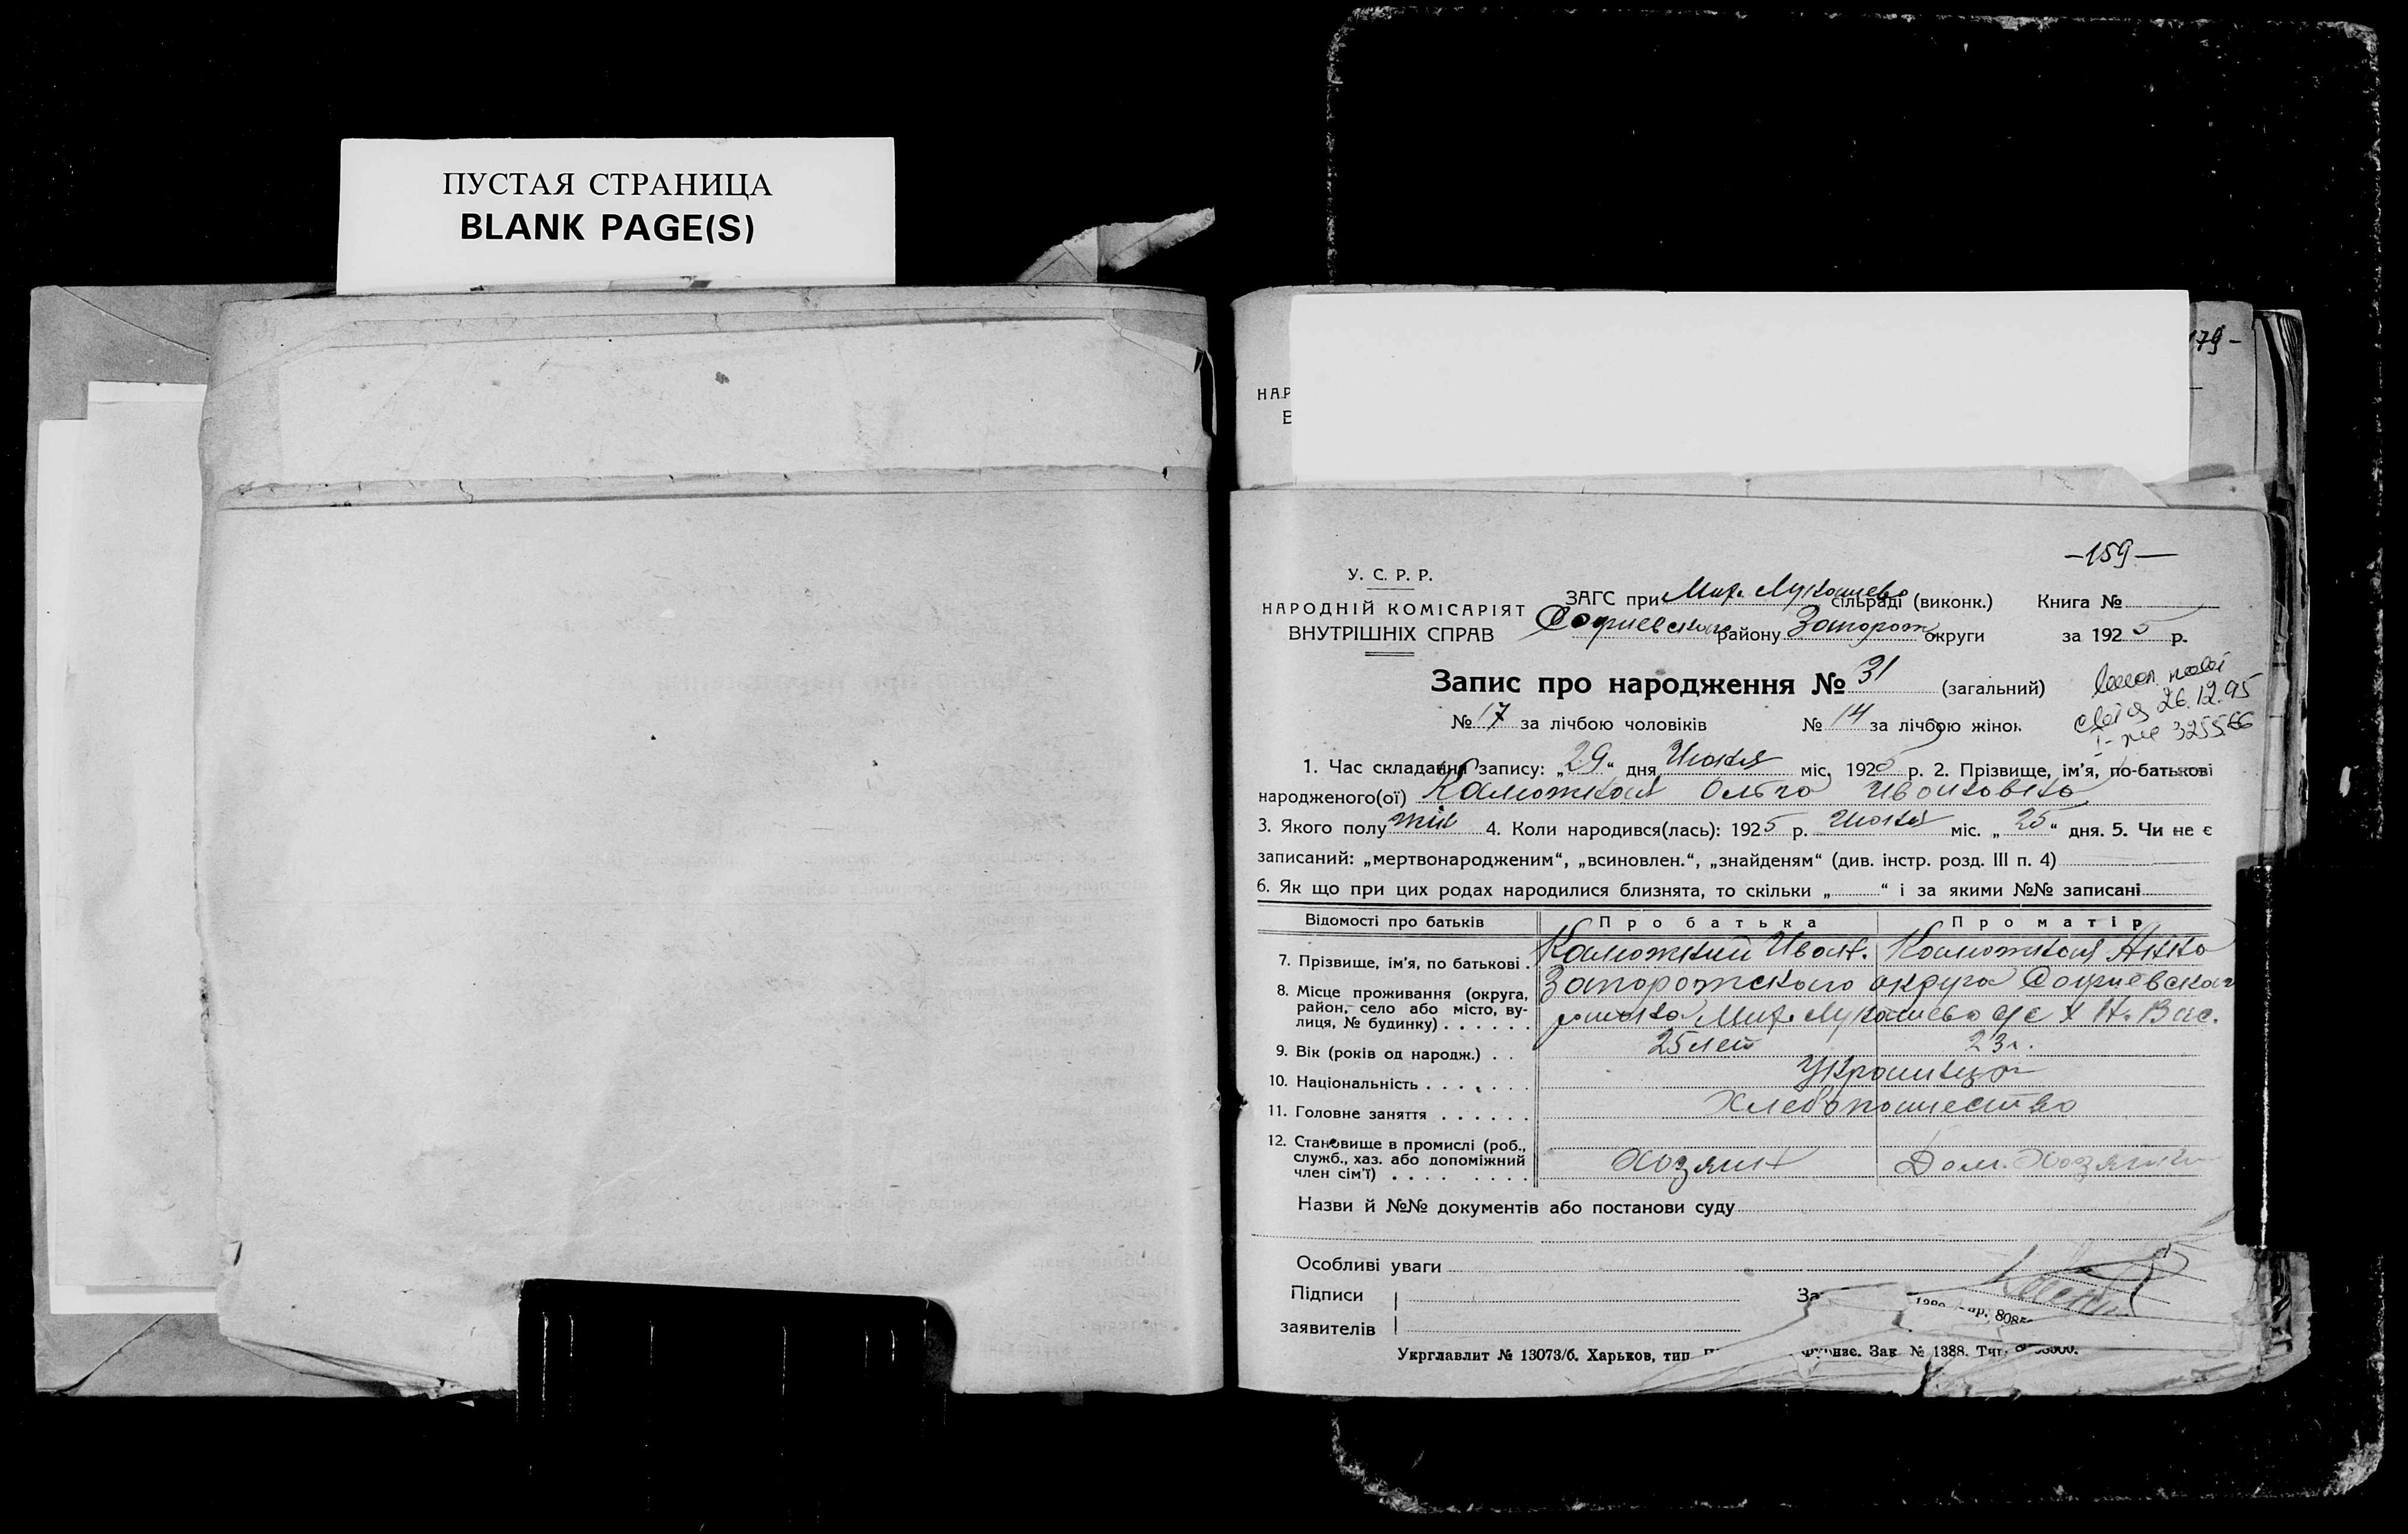 ПУСТАЯ СТРАНИЦА
BLANK PAGE(S)
179-
НАР
В
-159-
У. С. Р. Р.
НАРОДНІЙ КОМІСАРІЯТ
ВНУТРІШНІХ СПРАВ
ЗАГС при Мих. Лукашево сільраді (виконк.) Книга №
Софиевского району Запорож округи за 1925 р.
Запис про народження № 31 (загальний)
26.12.95
№ 17 за лічбою чоловіків № 14 за лічбою жінок
325566
1. Час складання запису: „29“ дня Июня міс. 1925 р. 2. Прізвище, ім'я, по-батькові
народженого(ої) Ольга Ивановна
3. Якого полу жін 4. Коли народився(лась): 1925 р. Июня міс. „25“ дня. 5. Чи не є
записаний: „мертвонародженим“, „всиновлен.“, „знайденям“ (див. інстр. розд. III п. 4)
6. Як що при цих родах народилися близнята, то скільки „ “ і за якими №№ записані
Відомості про батьків Про батька Про матір
7. Прізвище, ім'я, по батькові . Иван. Анна
8. Місце проживання (округа, Запорожского округа Софиевского
район, село або місто, ву-
лиця, № будинку) . . . . . . Мих. Лукашево с/с х Н. Вас.
9. Вік (років од народж.) . . 25 лет 23 г.
10. Національність . . . . . . . Украинцы
11. Головне заняття . . . . . . Хлебопашество
12. Становище в промислі (роб.,
служб., хаз. або допоміжний
член сім'ї) . . . . . . . . Хозяин Дом. Хозяйка
Назви й №№ документів або постанови суду
Особливі уваги
Підписи
За
заявителів
Укрглавлит № 13073/б. Харьков, тип. Зак № 1388.